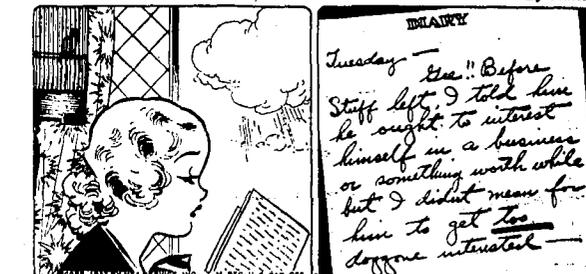 DIARY
Tuesday —
Gee!! Before
Stiff left, I told him
he ought to interest
himself in a business
or something worth while
but I didn't mean for
him to get too
doggone interested —